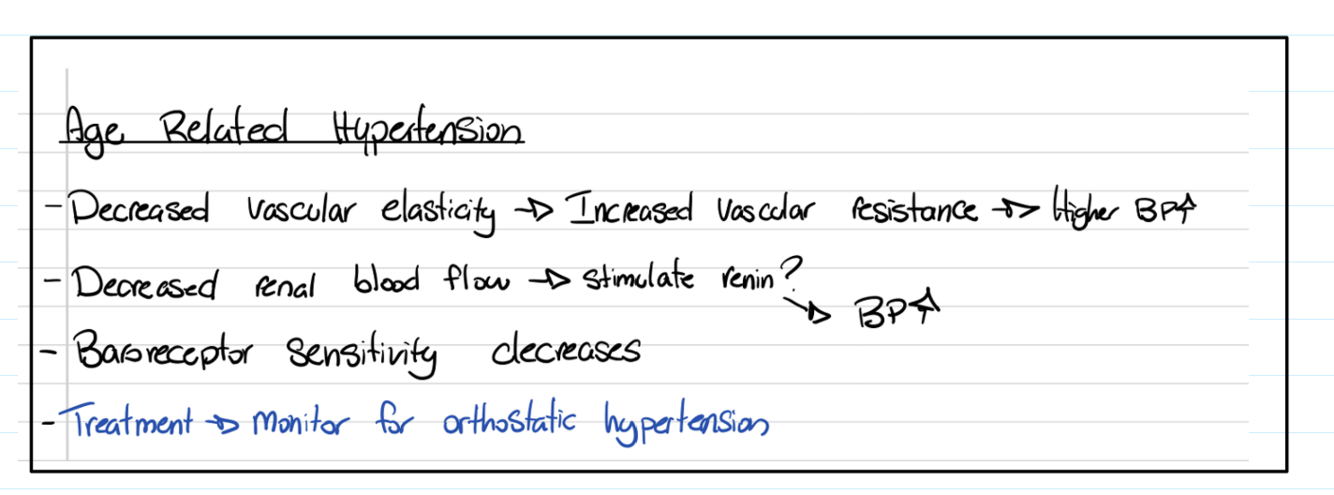 Age Related Hypertension
- Decreased vascular elasticity → Increased vascular resistance → Higher BP↑
- Decreased renal blood flow → stimulate renin?
→ BP↑
- Baroreceptor sensitivity decreases
- Treatment → Monitor for orthostatic hypertension